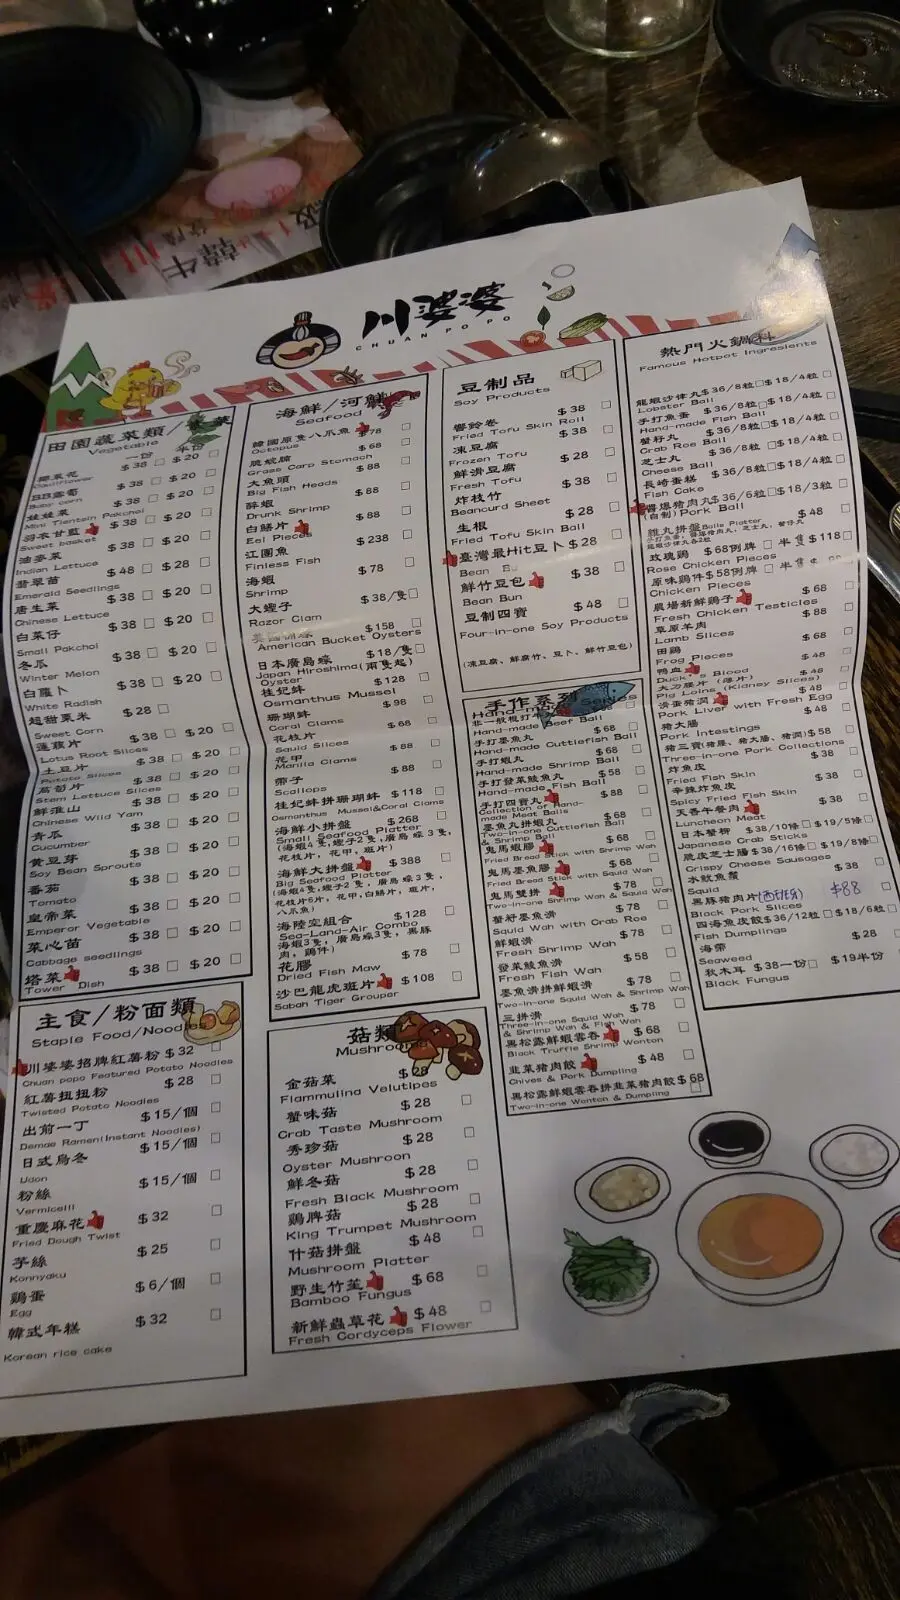 川婆婆
CHUAN PO PO
田園蔬菜類/
Vegetable
一份 半份
椰菜花 $38 □ $20 □
Cauliflower
BB露筍 $38 □ $20 □
Baby corn
娃娃菜 $38 □ $20 □
Mini Tientsin Pakchoi
羽衣甘藍 $38 □ $20 □
Sweet basket
油麥菜 $38 □ $20 □
Indian Lettuce
翡翠苗 $48 □ $28 □
Emerald Seedlings
唐生菜 $38 □ $20 □
Chinese Lettuce
白菜仔 $38 □ $20 □
Small Pakchoi
冬瓜 $38 □ $20 □
Winter Melon
白蘿卜 $38 □ $20 □
White Radish
超甜粟米 $28 □
Sweet Corn
蓮藕片 $38 □ $20 □
Lotus Root Slices
土豆片 $38 □ $20 □
Potato Slices
萵筍片 $38 □ $20 □
Stem Lettuce Slices
鮮淮山 $38 □ $20 □
Chinese Wild Yam
青瓜 $38 □ $20 □
Cucumber
黄豆芽 $38 □ $20 □
Soy Bean Sprouts
番茄 $38 □ $20 □
Tomato
皇帝菜 $38 □ $20 □
Emperor Vegetable
菜心苗 $38 □ $20 □
Cabbage seedlings
塔菜 $38 □ $20 □
Tower Dish
主食/粉面類
Staple Food/Noodles
川婆婆招牌紅薯粉 $32 □
Chuan popo Featured Potato Noodles
紅薯扭扭粉 $28 □
Twisted Potato Noodles
出前一丁 $15/個 □
Demae Ramen(Instant Noodles)
日式烏冬 $15/個 □
Udon
粉絲 $15/個 □
Vermicelli
重慶麻花 $32 □
Fried Dough Twist
芋絲 $25 □
Konnyaku
鷄蛋 $6/個 □
Egg
韓式年糕 $32 □
Korean rice cake
海鮮/河鮮
Seafood
韓國原隻八爪魚 $78 □
Octopus
脆鯇腩 $68 □
Grass Carp Stomach
大魚頭 $88 □
Big Fish Heads
醉蝦 $88 □
Drunk Shrimp
白鱔片 $88 □
Eel Pieces
江團魚 $238 □
Finless Fish
海蝦 $78 □
Shrimp
大蟶子 $38/隻 □
Razor Clam
$158 □
American Bucket Oysters
日本廣島蠔 $18/隻 □
Japan Hiroshima(兩隻起)
Oyster
桂妃蚌 $128 □
Osmanthus Mussel
珊瑚蚌 $98 □
Coral Clams
花枝片 $68 □
Squid Slices
花甲 $88 □
Manila Clams
帶子 $88 □
Scallops
桂妃蚌拼珊瑚蚌 $118 □
Osmanthus Mussel&Coral Clams
海鮮小拼盤 $268 □
Small Seafood Platter
(海蝦4隻,蟶子2隻,廣島蠔3隻,
花枝片,花甲,斑片)
海鮮大拼盤 $388 □
Big Seafood Platter
(海蝦4隻,蟶子2隻,廣島蠔3隻,
花枝片6片,花甲,白鱔片,斑片,
八爪魚)
海陸空組合 $128 □
Sea-Land-Air Combo
海蝦3隻,廣島蠔3隻,黑豚
肉,鷄件)
花膠 $78 □
Dried Fish Maw
沙巴龍虎斑片 $108 □
Sabah Tiger Grouper
菇類
Mushrooms
金菇菜 $28 □
Flammulina Velutipes
蟹味菇 $28 □
Crab Taste Mushroom
秀珍菇 $28 □
Oyster Mushroon
鮮冬菇 $28 □
Fresh Black Mushroom
鷄脾菇 $28 □
King Trumpet Mushroom
什菇拼盤 $48 □
Mushroom Platter
野生竹笙 $68 □
Bamboo Fungus
新鮮蟲草花 $48 □
Fresh Cordyceps Flower
豆制品
Soy Products
響鈴卷 $38 □
Fried Tofu Skin Roll
凍豆腐 $28 □
Frozen Tofu
鮮滑豆腐 $28 □
Fresh Tofu
炸枝竹 $38 □
Beancurd Sheet
生根 $28 □
Fried Tofu Skin Ball
臺灣最Hit豆卜 $28 □
Bean
鮮竹豆包 $38 □
Bean Bun
豆制四寶 $48 □
Four-in-one Soy Products
(凍豆腐、鮮腐竹、豆卜、鮮竹豆包)
手作系列
Hand-made Series
Hand-made Beef Ball
手打墨魚丸 $68 □
Hand-made Cuttlefish Ball
手打蝦丸 $68 □
Hand-made Shrimp Ball
手打發菜鯪魚丸 $58 □
Hand-made Fish Ball
手打四寶丸 $88 □
Collection of Hand-
made Meat Balls
墨魚丸拼蝦丸 $68 □
Two-in-one Cuttlefish Ball
& Shrimp Ball
鬼馬蝦膠 $68 □
Fried Bread Stick with Shrimp Wah
鬼馬墨魚膠 $68 □
Fried Bread Stick with Squid Wah
鬼馬雙拼 $78 □
Two-in-one Shrimp Wah & Squid Wah
蟹籽墨魚滑 $78 □
Squid Wah with Crab Roe
鮮蝦滑 $78 □
Fresh Shrimp Wah
發菜鯪魚滑 $58 □
Fresh Fish Wah
墨魚滑拼鮮蝦滑 $78 □
Two-in-one Squid Wah & Shrimp Wah
三拼滑 $78 □
Three-in-one Squid Wah
& Shrimp Wah & Fish Wah
黑松露鮮蝦雲吞 $68 □
Black Truffle Shrimp Wonton
韭菜猪肉餃 $48 □
Chives & Pork Dumpling
黑松露鮮蝦雲吞拼韭菜猪肉餃 $68
Two-in-one Wonton & Dumpling
熱門火鍋料
Famous Hotpot Ingresients
龍蝦沙律丸 $36/8粒 □ $18/4粒 □
Lobster Ball
手打魚蛋 $36/8粒 □ $18/4粒 □
Hand-made Fish Ball
蟹籽丸 $36/8粒 □ $18/4粒 □
Crab Roe Ball
芝士丸 $36/8粒 □ $18/4粒 □
Cheese Ball
長崎蛋糕 $36/8粒 □ $18/4粒 □
Fish Cake
醬爆猪肉丸 $36/6粒 □ $18/3粒 □
(自制)Pork Ball
雜丸拼盤Balls Platter $48 □
玫瑰鷄 $68例牌 □ 半隻 $118 □
Rose Chicken Pieces
原味鷄件 $58例牌 □ 半隻
Chicken Pieces
農場新鮮鷄子 $68 □
Fresh Chicken Testicles
草原羊肉 $88 □
Lamb Slices
田鷄 $68 □
Frog Pieces
鴨血 $48 □
Duck's Blood
大刀腰片 (薄片) $48 □
Pig Loins (Kidney Slices)
滑蛋猪潤 $48 □
Pork Liver with Fresh Egg
猪大腸 $48 □
Pork Intestings
猪三寶(猪腰、猪大腸、猪潤) $58 □
Three-in-one Pork Collections
炸魚皮 $38 □
Fried Fish Skin
辛辣炸魚皮 $38 □
Spicy Fried Fish Skin
天香午餐肉 $38 □
Luncheon Meat
日本蟹柳 $38/10條 □ $19/5條 □
Japanese Crab Sticks
脆皮芝士腸 $38/16條 □ $19/8條 □
Crispy Cheese Sausages
水魷魚鬚 $38 □
Squid
黑豚猪肉片(西班牙) $88
Black Pork Slices
四海魚皮餃 $36/12粒 □ $18/6粒 □
Fish Dumplings
海帶 $28 □
Seaweed
秋木耳 $38一份 □ $19半份 □
Black Fungus
韓牛